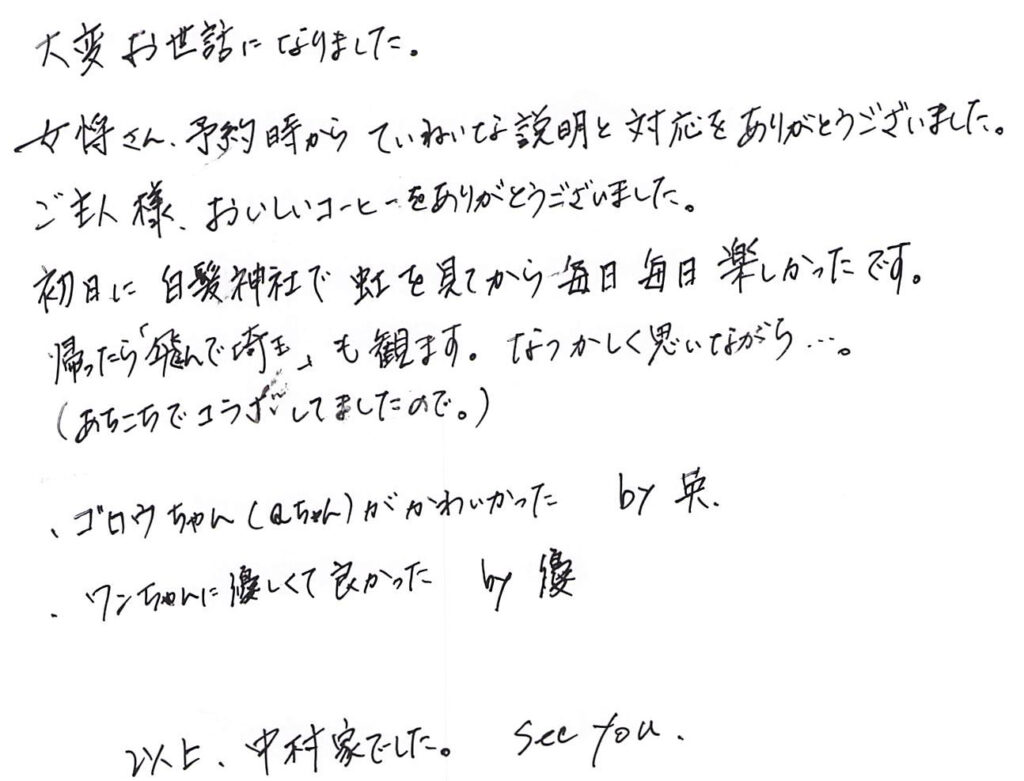 大変お世話になりました。
女将さん、予約時からていねいな説明と対応をありがとうございました。
ご主人様、おいしいコーヒーをありがとうございました。
初日に白髪神社で虹を見てから毎日毎日楽しかったです。
帰ったら「飛んで埼玉」も観ます。なつかしく思いながら…。
(あちこちでコラボしてましたので。)
、ゴロウちゃん(Qちゃん)がかわいかった by 英.
、ワンちゃんに優しくて良かった by 優
以上、中村家でした。 see you.